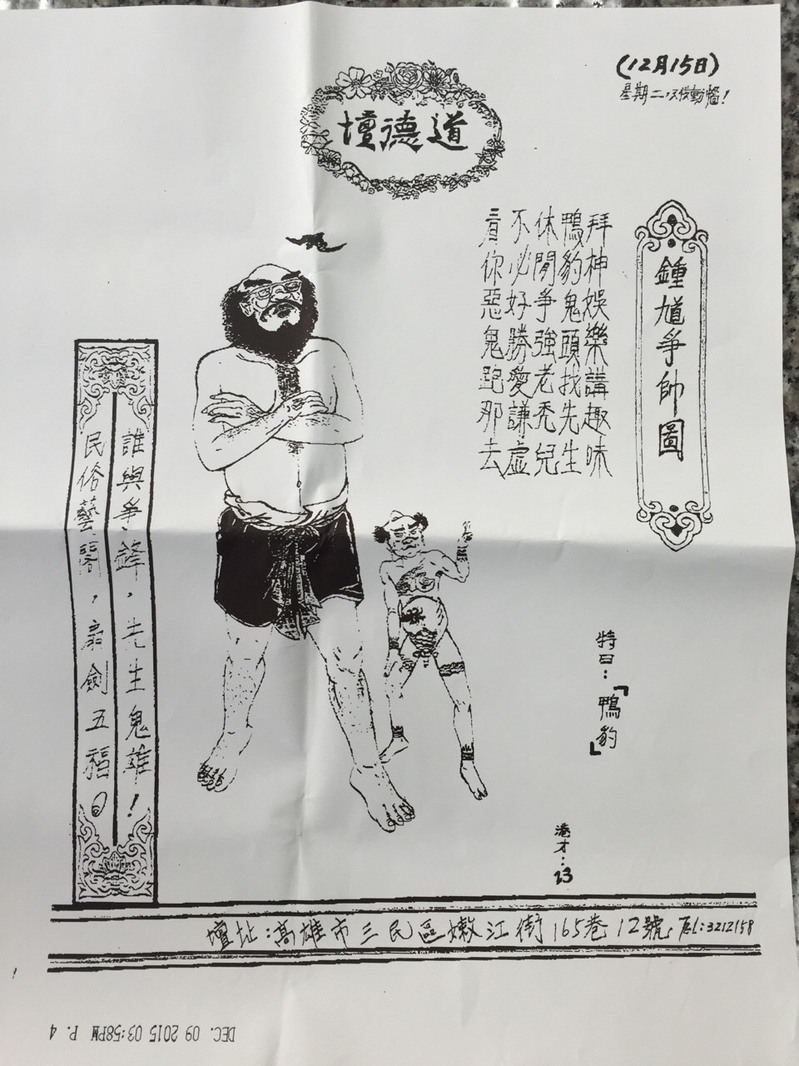 (12月15日)
星期二,動腦!
道德壇
鍾馗爭帥圖
拜神娛樂講趣味
鴨豹鬼頭找先生
休閒爭強老禿兒
不必好勝愛謙虛
看你惡鬼跑那去
特曰:「鴨豹」
港才:13
誰與爭鋒,先生鬼雄!
民俗藝閣,扇劍五福。
壇址:高雄市三民區嫩江街165巷12號 Tel:3212158
DEC. 09 2015 03:58PM P. 4